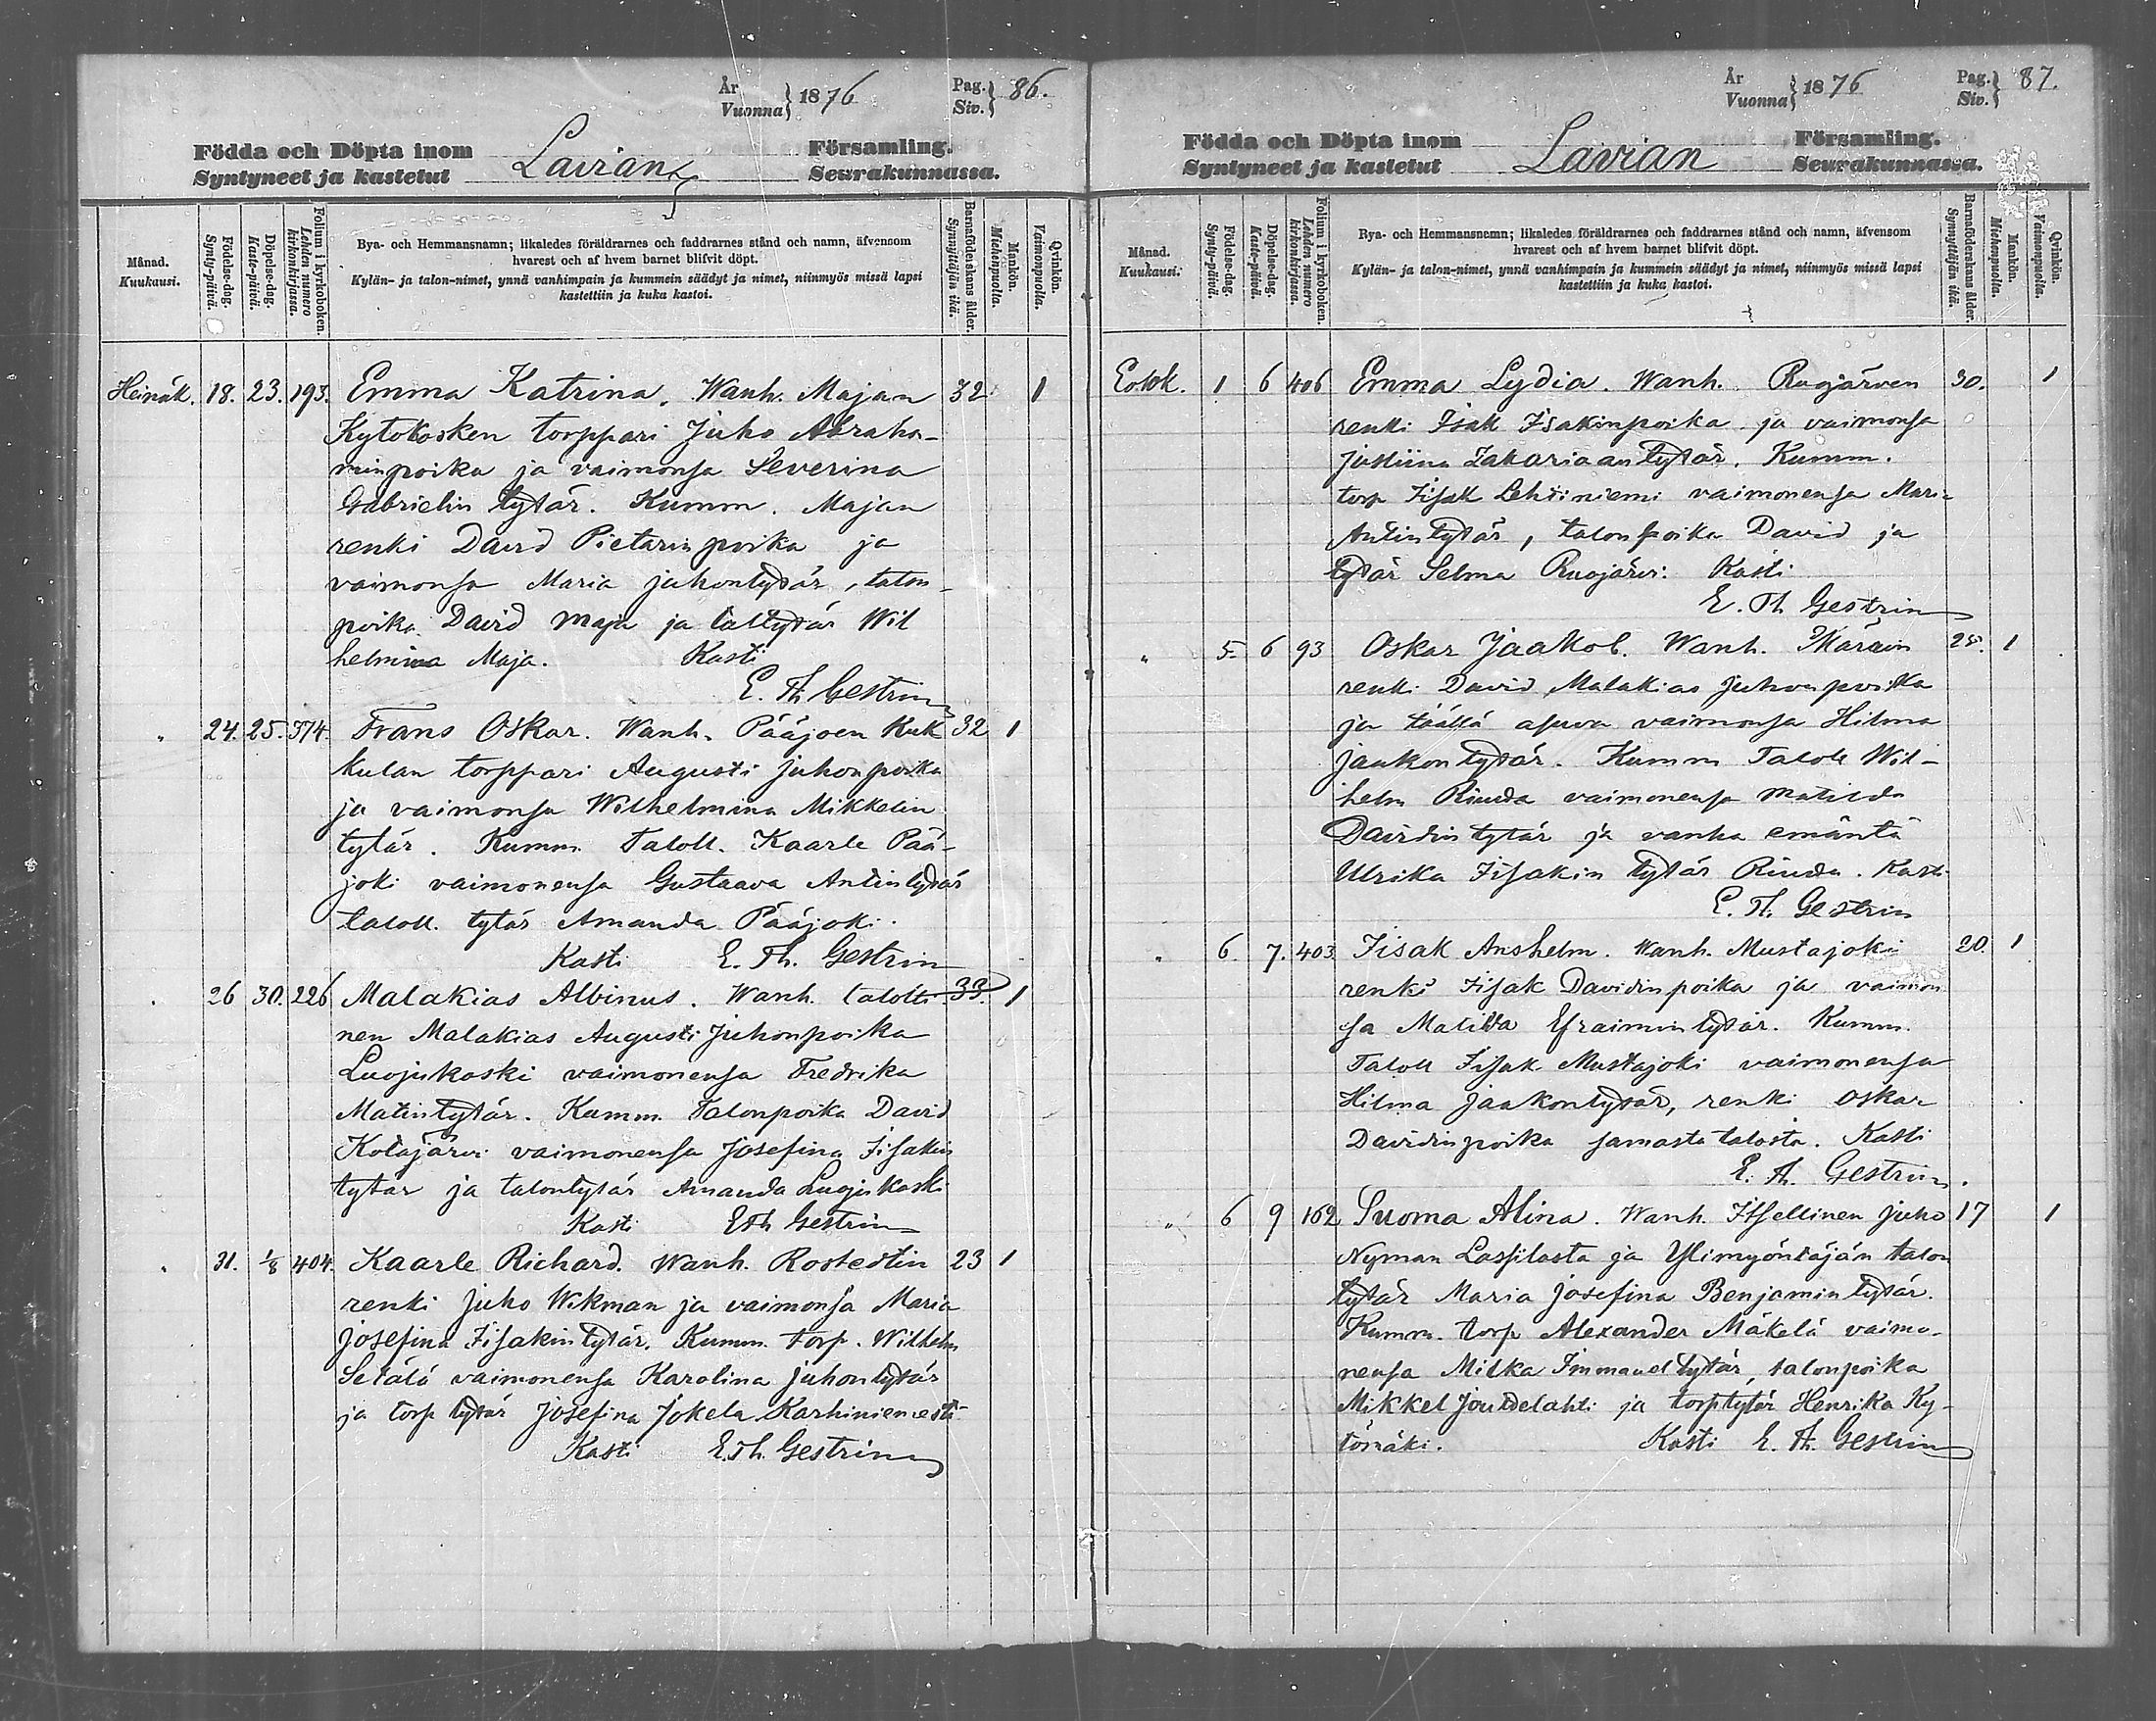 År
Vuonna } 1876
Pag.
Siv. } 86.
Födda och Döpta inom Församling.
Syntyneet ja kastetut Lavian Seurakunnassa.
Månad.
Kuukausi.
Födelse-dag.
Synty-päivä.
Döpelse-dag.
Kaste-päivä.
Folium i kyrkoboken.
Lehden numero
kirkonkirjassa.
Bya- och Hemmansnamn; likaledes föräldrarnes och faddrarnes stånd och namn, äfvensom
hvarest och af hvem barnet blifvit döpt.
Kylän- ja talon-nimet, ynnä vanhimpain ja kummein säädyt ja nimet, niinmyös missä lapsi
kastettiin ja kuka kastoi.
Barnaföderskans ålder.
Synnyttäjän ikä.
Mankön.
Miehenpuolia.
Qvinkön.
Vaimonpuolia.
Heinäk. 18. 23. 193. Emma Katrina. Wanh. Majan 32 1
Kytökosken torppari Juho Abraha-
minpoika ja vaimonsa Severina
Gabrielin tytär. Kumm. Majan
renki David Pietarinpoika ja
vaimonsa Maria Juhontytär, talon-
poika David Maja ja taltytär Wil
helmina Maja. Kasti
E. Th Gestrin
" 24. 25. 374. Frans Oskar. Wanh. Pääjoen Kuk 32 1
kulan torppari Augusti Juhonpoika
ja vaimonsa Wilhelmina Mikkelin
tytär. Kumm. Taloll. Kaarle Pää-
joki vaimonensa Gustaava Antintytär
taloll. tytär Amanda Pääjoki.
Kasti E. Th. Gestrin
" 26 30. 226 Malakias Albinus. Wanh. talolli 33. 1
nen Malakias Augusti Juhonpoika
Luojukoski vaimonensa Fredrika
Matintytär. Kumm. Talonpoika David
Kotajärvi vaimonensa Josefina Iisakin
tytär ja talontytär Amanda Luojukoski
Kasti E Th Gestrin
" 31. 1/8 404. Kaarle Richard. Wanh. Rostedtin 23 1
renki Juho Wikman ja vaimonsa Maria
Josefina Iisakintytär. Kumm. torp. Wilhelm
Setälä vaimonensa Karolina Juhontytär
ja torp tytär Josefina Jokela Karhiniemestä
Kasti E. Th. Gestrin
År
Vuonna } 1876
Pag.
Siv. } 87.
Födda och Döpta inom Församling.
Syntyneet ja kastetut Lavian Seurakunnassa.
Månad.
Kuukausi.
Födelse-dag.
Synty-päivä.
Döpelse-dag.
Kaste-päivä.
Folium i kyrkoboken.
Lehden numero
kirkonkirjassa.
Bya- och Hemmansnemn; likaledes föräldrarnes och faddrarnes stånd och namn, äfvensom
hvarest och af hvem barnet blifvit döpt.
Kylän- ja talon-nimet, ynnä vanhimpain ja kummein säädyt ja nimet, niinmyös missä lapsi
kastettiin ja kuka kastoi.
Barnaföderskans ålder.
Synnyttäjän ikä.
Mankön.
Miehenpuolia.
Qvinkön.
Vaimonpuolia.
Eolok. 1 6 406 Emma Lydia. Wanh. Ruojärven 30. 1
renki Isak Isakinpoika ja vaimonsa
Justiina Zakariaantytär. Kumm.
torp Iisak Lehtiniemi vaimonensa Mari-
Antintytär, talonpoika David ja
tytär Selma Ruojärvi. Kasti
E. Th Gestrin
" 5. 6 93 Oskar Jaakob. Wanh. 25. 1
renki David Malakias Juhonpoika
ja täällä asuva vaimonsa Hilma
Jaakontytär. Kumm Taloll Wil-
helm Riuda vaimonensa Matilda
Davidin tytär ja vanha emäntä
Ulrika Iisakin tytär Riuda. Kasti
E. Th. Gestrin
" 6. 7. 403. Iisak Anshelm. Wanh. Mustajoki 20. 1
renki Iisak Davidinpoika ja vaimon
sa Matilda Efraimintytär. Kumm.
Taloll Iisak Mustajoki vaimonensa
Hilma Jaakontytär, renki Oskar
Davidinpoika samasta talosta. Kasti
E. Th. Gestrin.
" 6 9 162 Suoma Alina. Wanh. Itsellinen Juho 17 1
Nyman Lassilasta ja Ylimyöntäjän talon
tytär Maria Josefina Benjamintytär.
Kumm. torp Alexander Mäkelä vaimo-
nensa Milka Immanuel tytär, talonpoika
Mikkel Joutdelahti ja torptytär Henrika Ky-
tömäki. Kasti E. Th. Gestrin